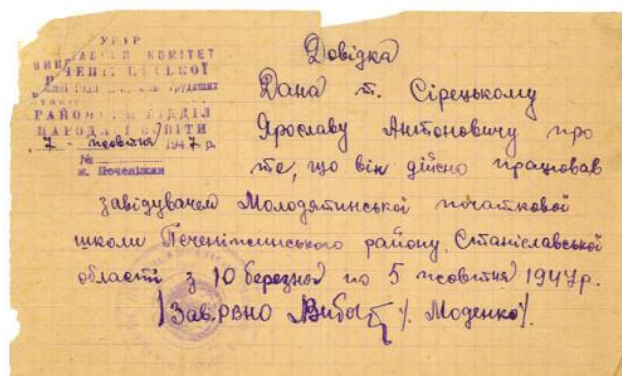 УРСР
ВИКОНАВЧИЙ КОМІТЕТ
ПЕЧЕНІЖИНСЬКОЇ
районної Ради депутатів трудящих
РАЙОННИЙ ВІДДІЛ
НАРОДНОЇ ОСВІТИ
"7" жовтня 1947 р.
№
м. Печеніжин
Довідка
Дана т. Сірецькому
Ярославу Антоновичу про
те, що він дійсно працював
завідувачем Молодятинської початкової
школи Печеніжинського району, Станіславської
області з 10 березня по 5 жовтня 1947р.
/Зав.РВНО /. Моденко/.